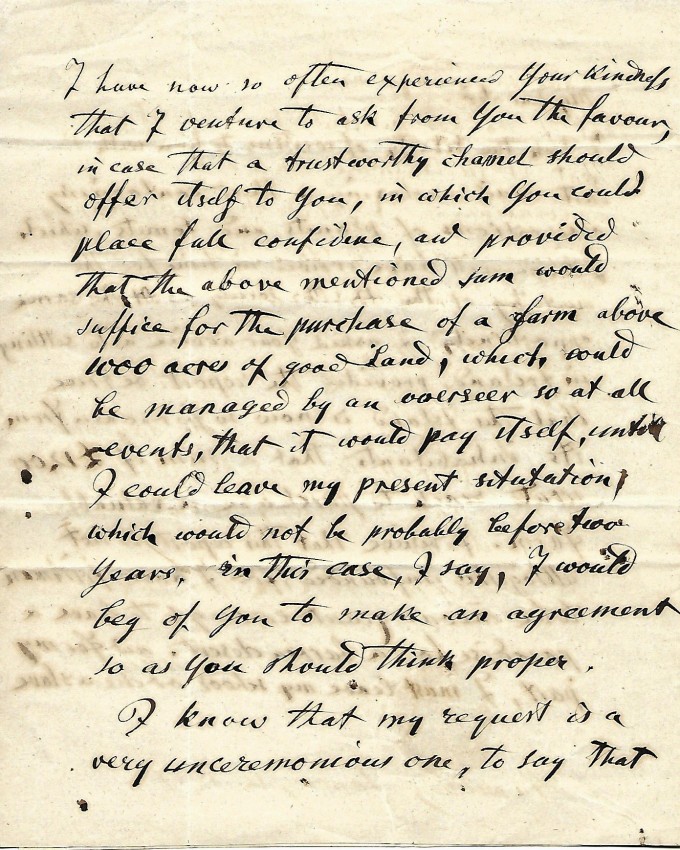 I have now so often experienced your kindness
that I venture to ask from you the favour,
in case that a trustworthy channel should
offer itself to you, in which you could
place full confidence, and provided
that the above mentioned sum would
suffice for the purchase of a farm above
1000 acres of good land, which could
be managed by an overseer so at all
events, that it would pay itself, until
I could leave my present situtation,
which would not be probably before two
years, in this case, I say, I would
beg of you to make an agreement
so as you should think proper.
I know that my request is a
very unceremonious one, to say that